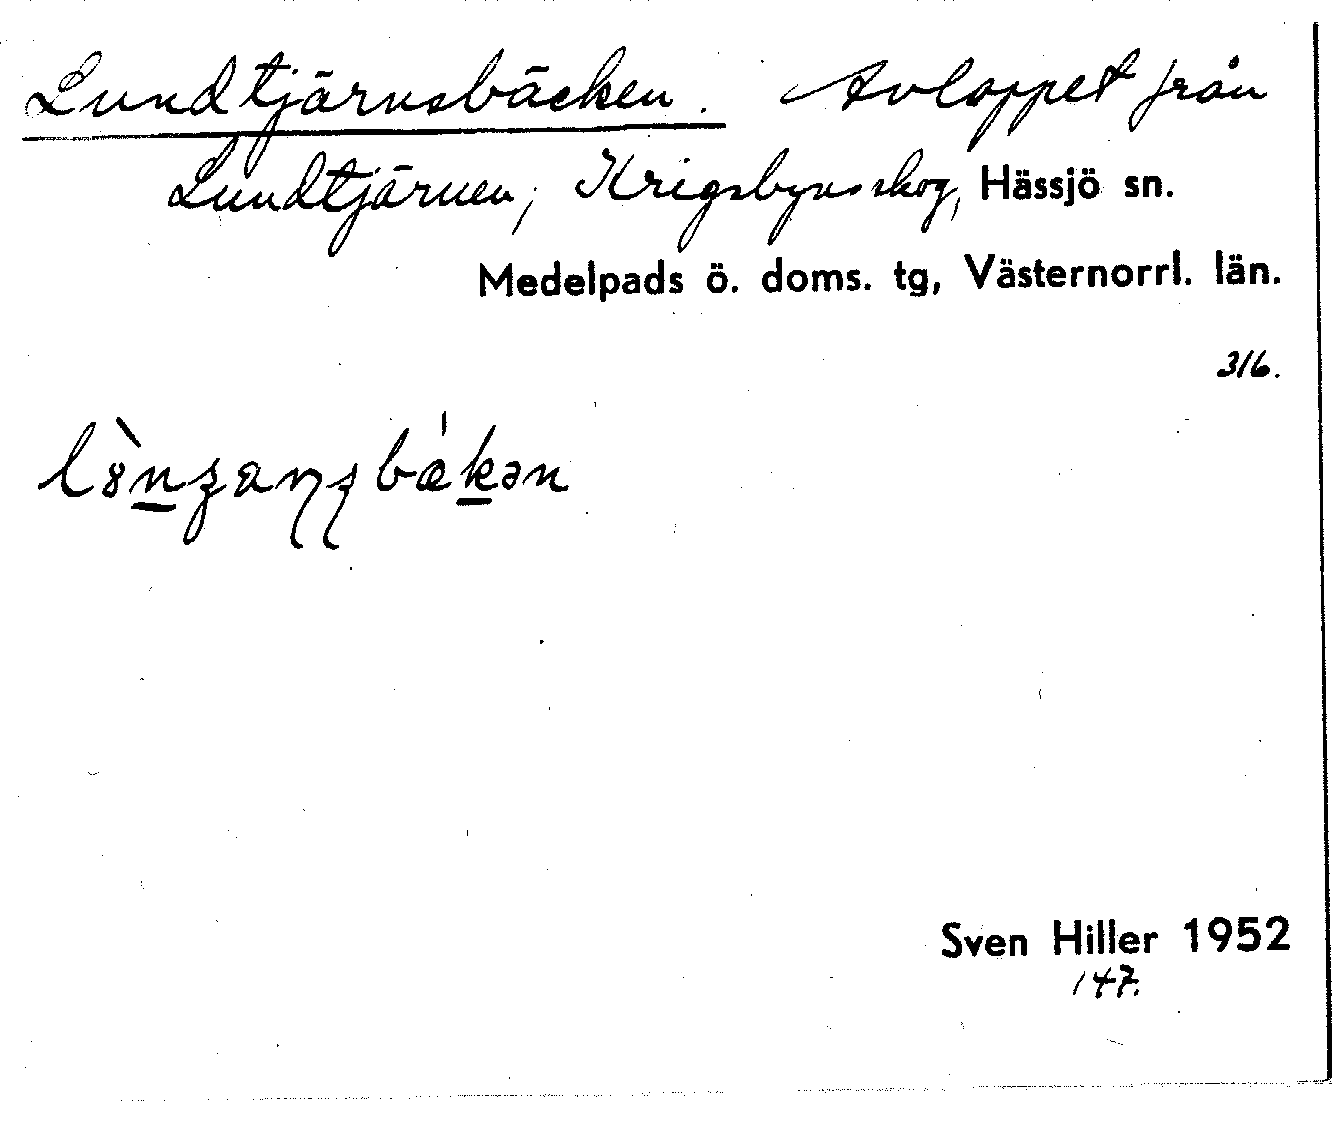 Lundtjärnsbäcken. Avloppet från
Lundtjärnen, Krigsbyns skog, Hässjö sn.
Medelpads ö. doms. tg, Västernorrl. län.
316.
Sven Hiller 1952
147.